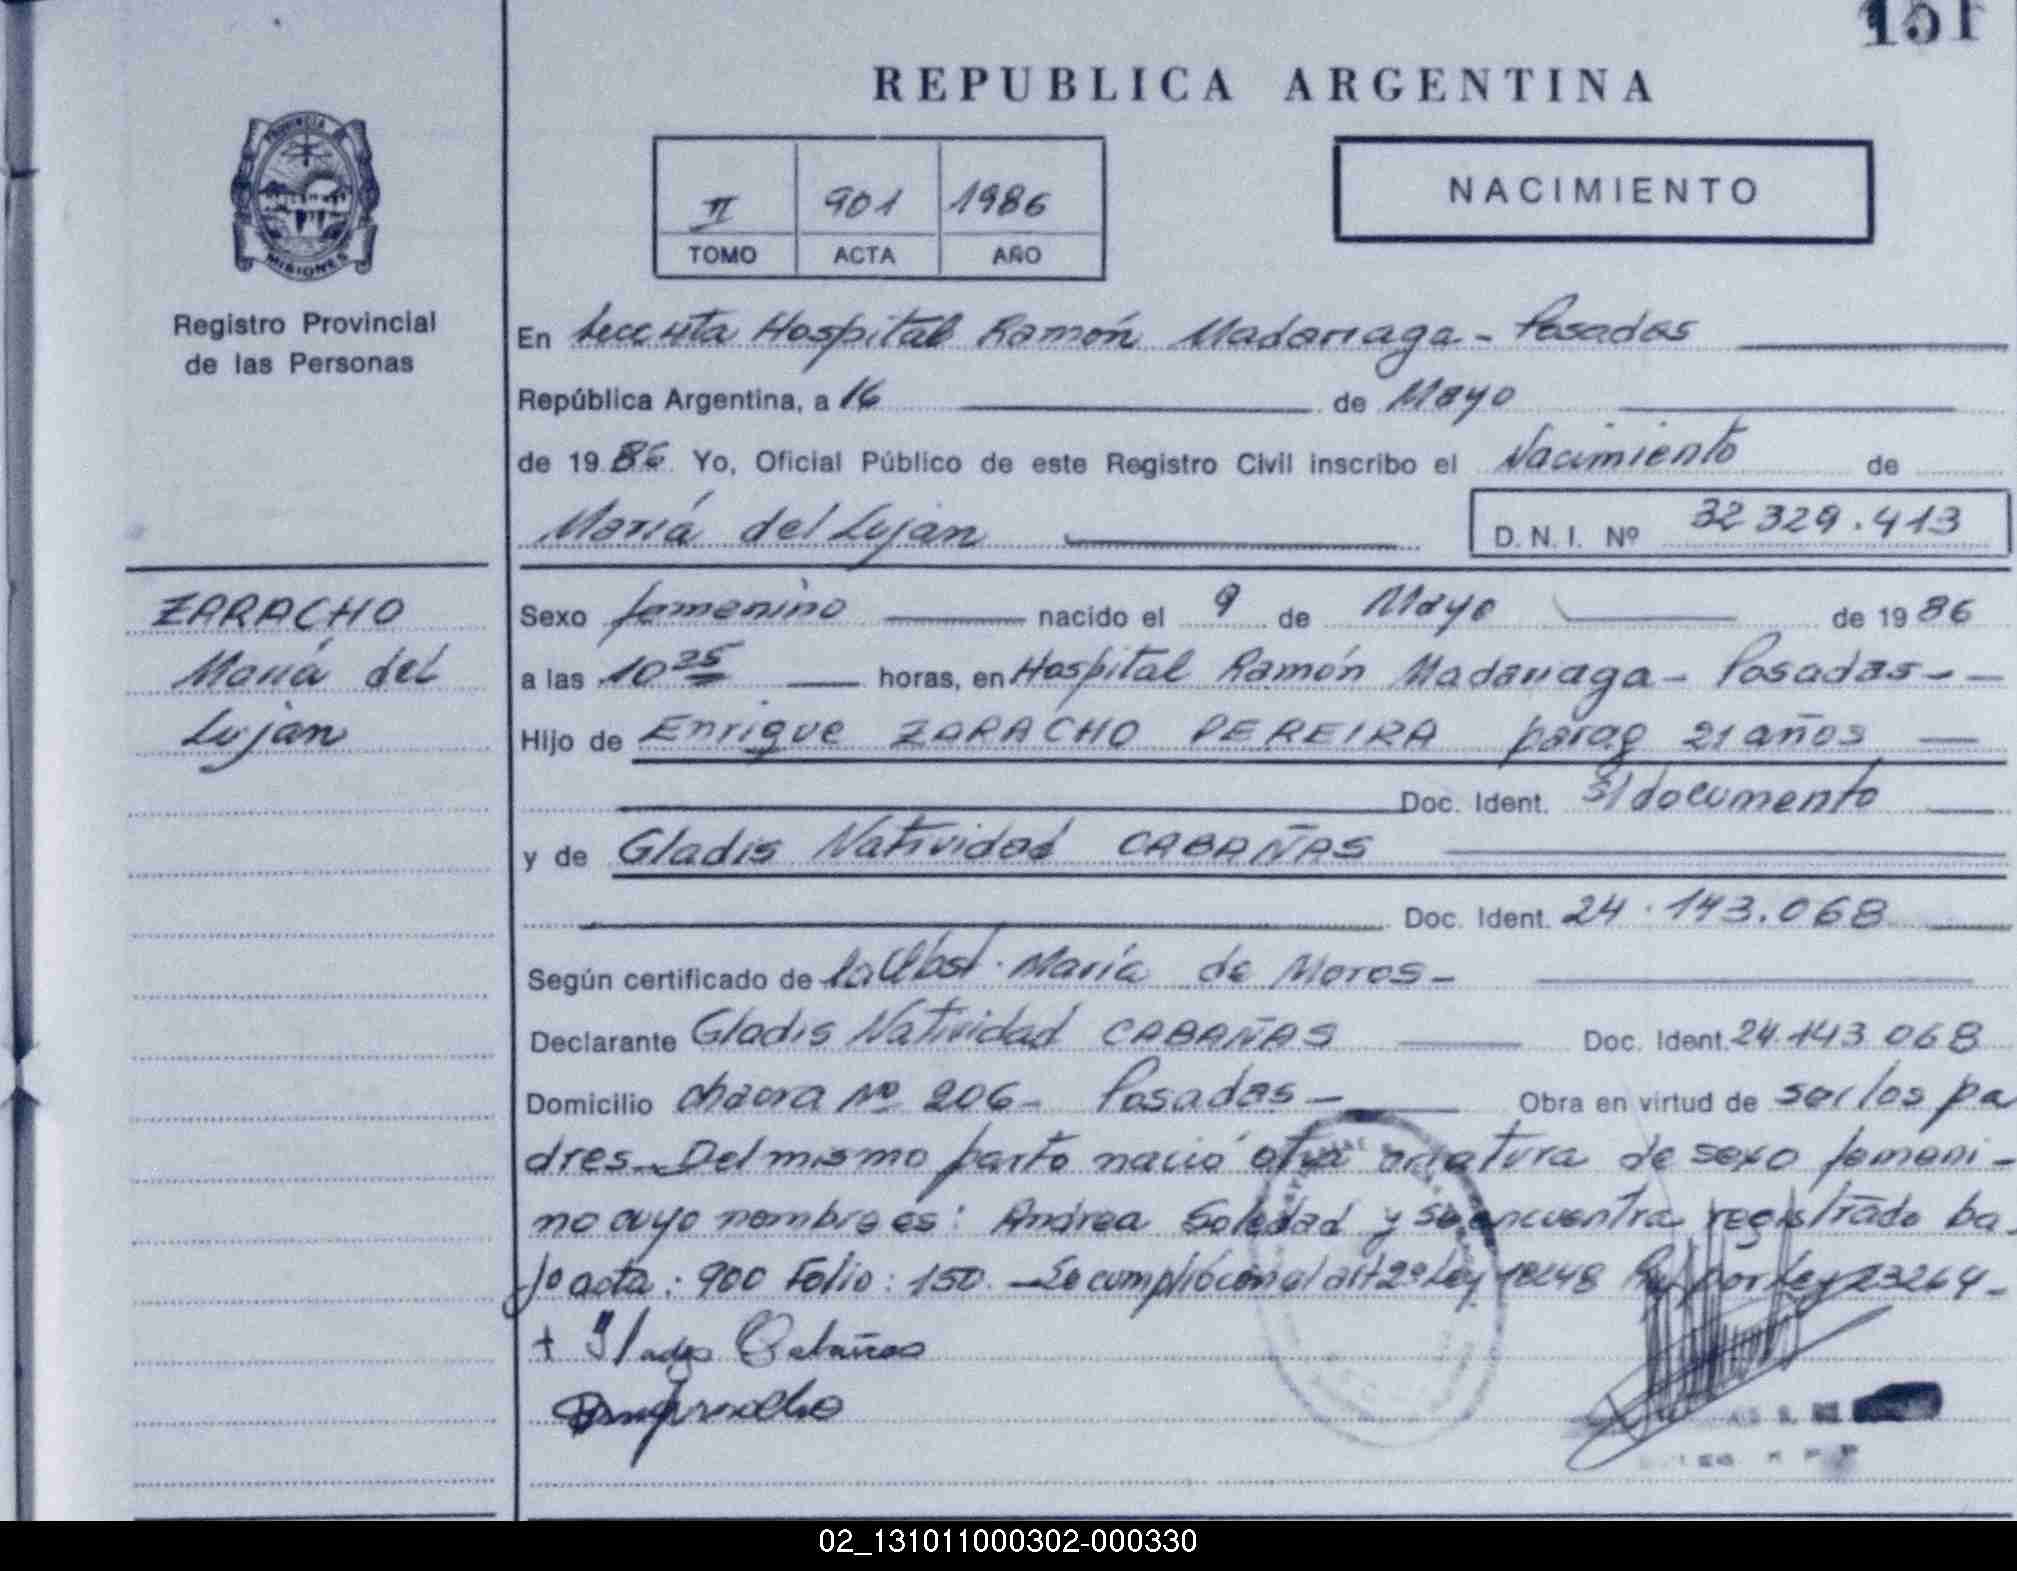 151
REPUBLICA ARGENTINA
PROVINCIA DE
MISIONES
Registro Provincial
de las Personas
II 901 1986
TOMO ACTA AÑO
NACIMIENTO
En Hospital Ramón Madariaga - Posadas
República Argentina, a 16 de Mayo
de 1986. Yo, Oficial Público de este Registro Civil inscribo el Nacimiento de
María del Luján
D. N. I. Nº 32 329.413
ZARACHO
María del
Luján
Sexo femenino nacido el 9 de Mayo de 1986
a las 10 25 horas, en Hospital Ramón Madariaga - Posadas - -
Hijo de Enrique ZARACHO PEREIRA parag 21 años
Doc. Ident. S/documento
y de Gladis Natividad CABAÑAS
Doc. Ident. 24.143.068
Según certificado de la Obst. María de Moros -
Declarante Gladis Natividad CABAÑAS Doc. Ident. 24.143 068
Domicilio chacra Nº 206 - Posadas - Obra en virtud de ser los pa
dres. Del mismo parto nació otra criatura de sexo femeni-
no cuyo nombre es: Andrea Soledad y se encuentra registrado ba-
jo acta: 900 Folio: 150. - Se cumplió con el art 2º Ley 18248 por Ley 23264 -
+ Gladys Cabañas
02_131011000302-000330